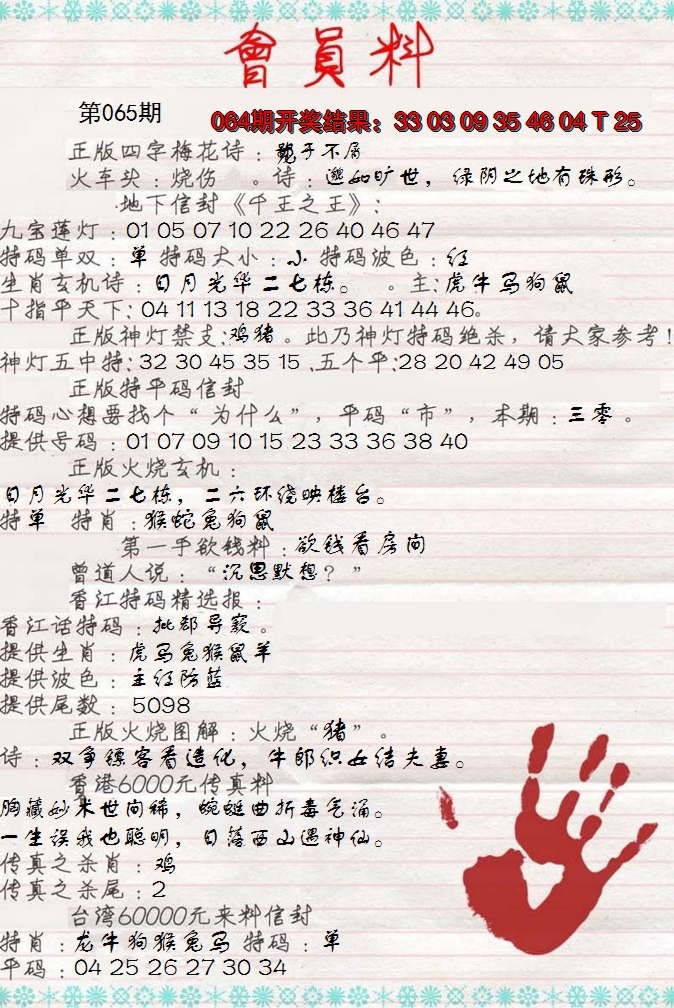 會員料
第065期
064期开奖结果：33 03 09 35 46 04 T 25
正版四字梅花诗：子不屑
火车头：烧伤 。诗：如旷世，绿阴之地有殊形。
地下信封《千王之王》：
九宝莲灯：01 05 07 10 22 26 40 46 47
特码单双：单 特码大小：小 特码波色：红
生肖玄机诗：日月光华二七栋。 。主：虎牛马狗鼠
十指平天下：04 11 13 18 22 33 36 41 44 46。
正版神灯禁支：鸡猪。此乃神灯特码绝杀，请大家参考！
神灯五中特：32 30 45 35 15 .五个平：28 20 42 49 05
正版特平码信封
特码心想要找个“为什么”，平码“市”，本期：三零。
提供号码：01 07 09 10 15 23 33 36 38 40
正版火烧玄机：
日月光华二七栋，二六环绕映楼台。
特单 特肖：猴蛇兔狗鼠
第一手欲钱料：欲钱看房间
曾道人说：“沉思默想？”
香江特码精选报：
香江话特码：批郤导窾。
提供生肖：虎马兔猴鼠羊
提供波色：主红防蓝
提供尾数：5098
正版火烧图解：火烧“猪”。
诗：双争镖客看造化，牛郎织女结夫妻。
香港6000元传真料
胸藏妙术世间稀，蜿蜒曲折毒气涌。
一生误我也聪明，日落西山遇神仙。
传真之杀肖：鸡
传真之杀尾：2
台湾60000元来料信封
特肖：龙牛狗猴兔马 特码：单
平码：04 25 26 27 30 34